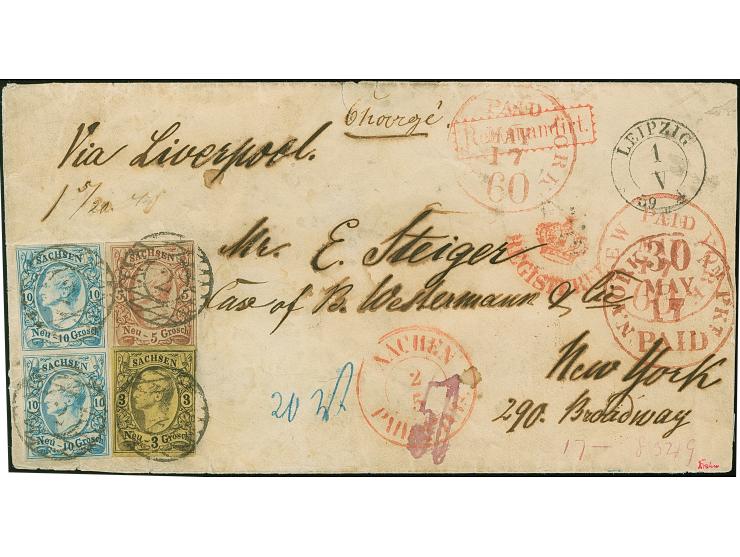 Chargé.
Via Liverpool.
PAID
Recommandirt.
17
60
YORK
LEIPZIG
1
V
59
REGISTERED
NEW YORK
PAID
30
MAY
17
PAID
Mr. E. Steiger
Care of B. Westermann & Co
New York
290. Broadway
SACHSEN
10 10
Neu-10 Grosch
SACHSEN
5 5
Neu-5 Grosch
SACHSEN
10 10
Neu-10 Grosch
SACHSEN
3 3
Neu-3 Grosch
2
AACHEN
2
5
20